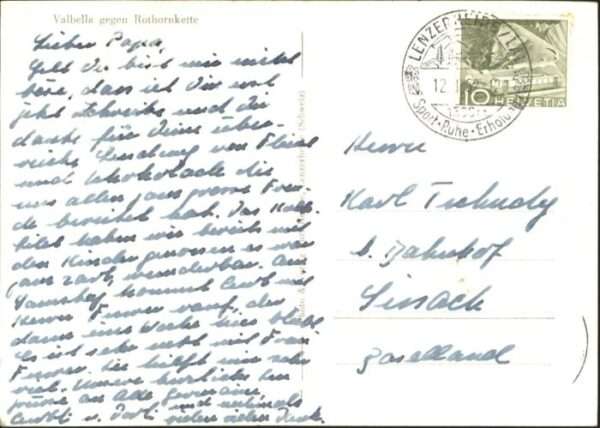 Valbella gegen Rothornkette
Lieber Papa,
Gell Du bist mir nicht
böse, dass ich Dir erst
jetzt schreibe und Dir
danke für Deine über-
reiche Sendung von Fleisch
und Schokolade die
uns allen ganz grosse Freu-
de bereitet hat. Das
haben wir bereits mit
den Kinder genossen es war
ganz zart, wunderbar. Am
Samstag kommt und
Herrn Furrer rauf, der
dann eine Woche hier bleibt.
Es ist sehr nett mit Frau
Furrer. Sie hilft mir sehr
viel. Unsere herzlichsten
Grüsse an alle
und nochmals
vielen vielen Dank.
LENZERHEIDE/LAI
12.
Sport-Ruhe-Erholung
10 HELVETIA
Herrn
Karl Tschudy
b. Bahnhof
Sissach
Baselland